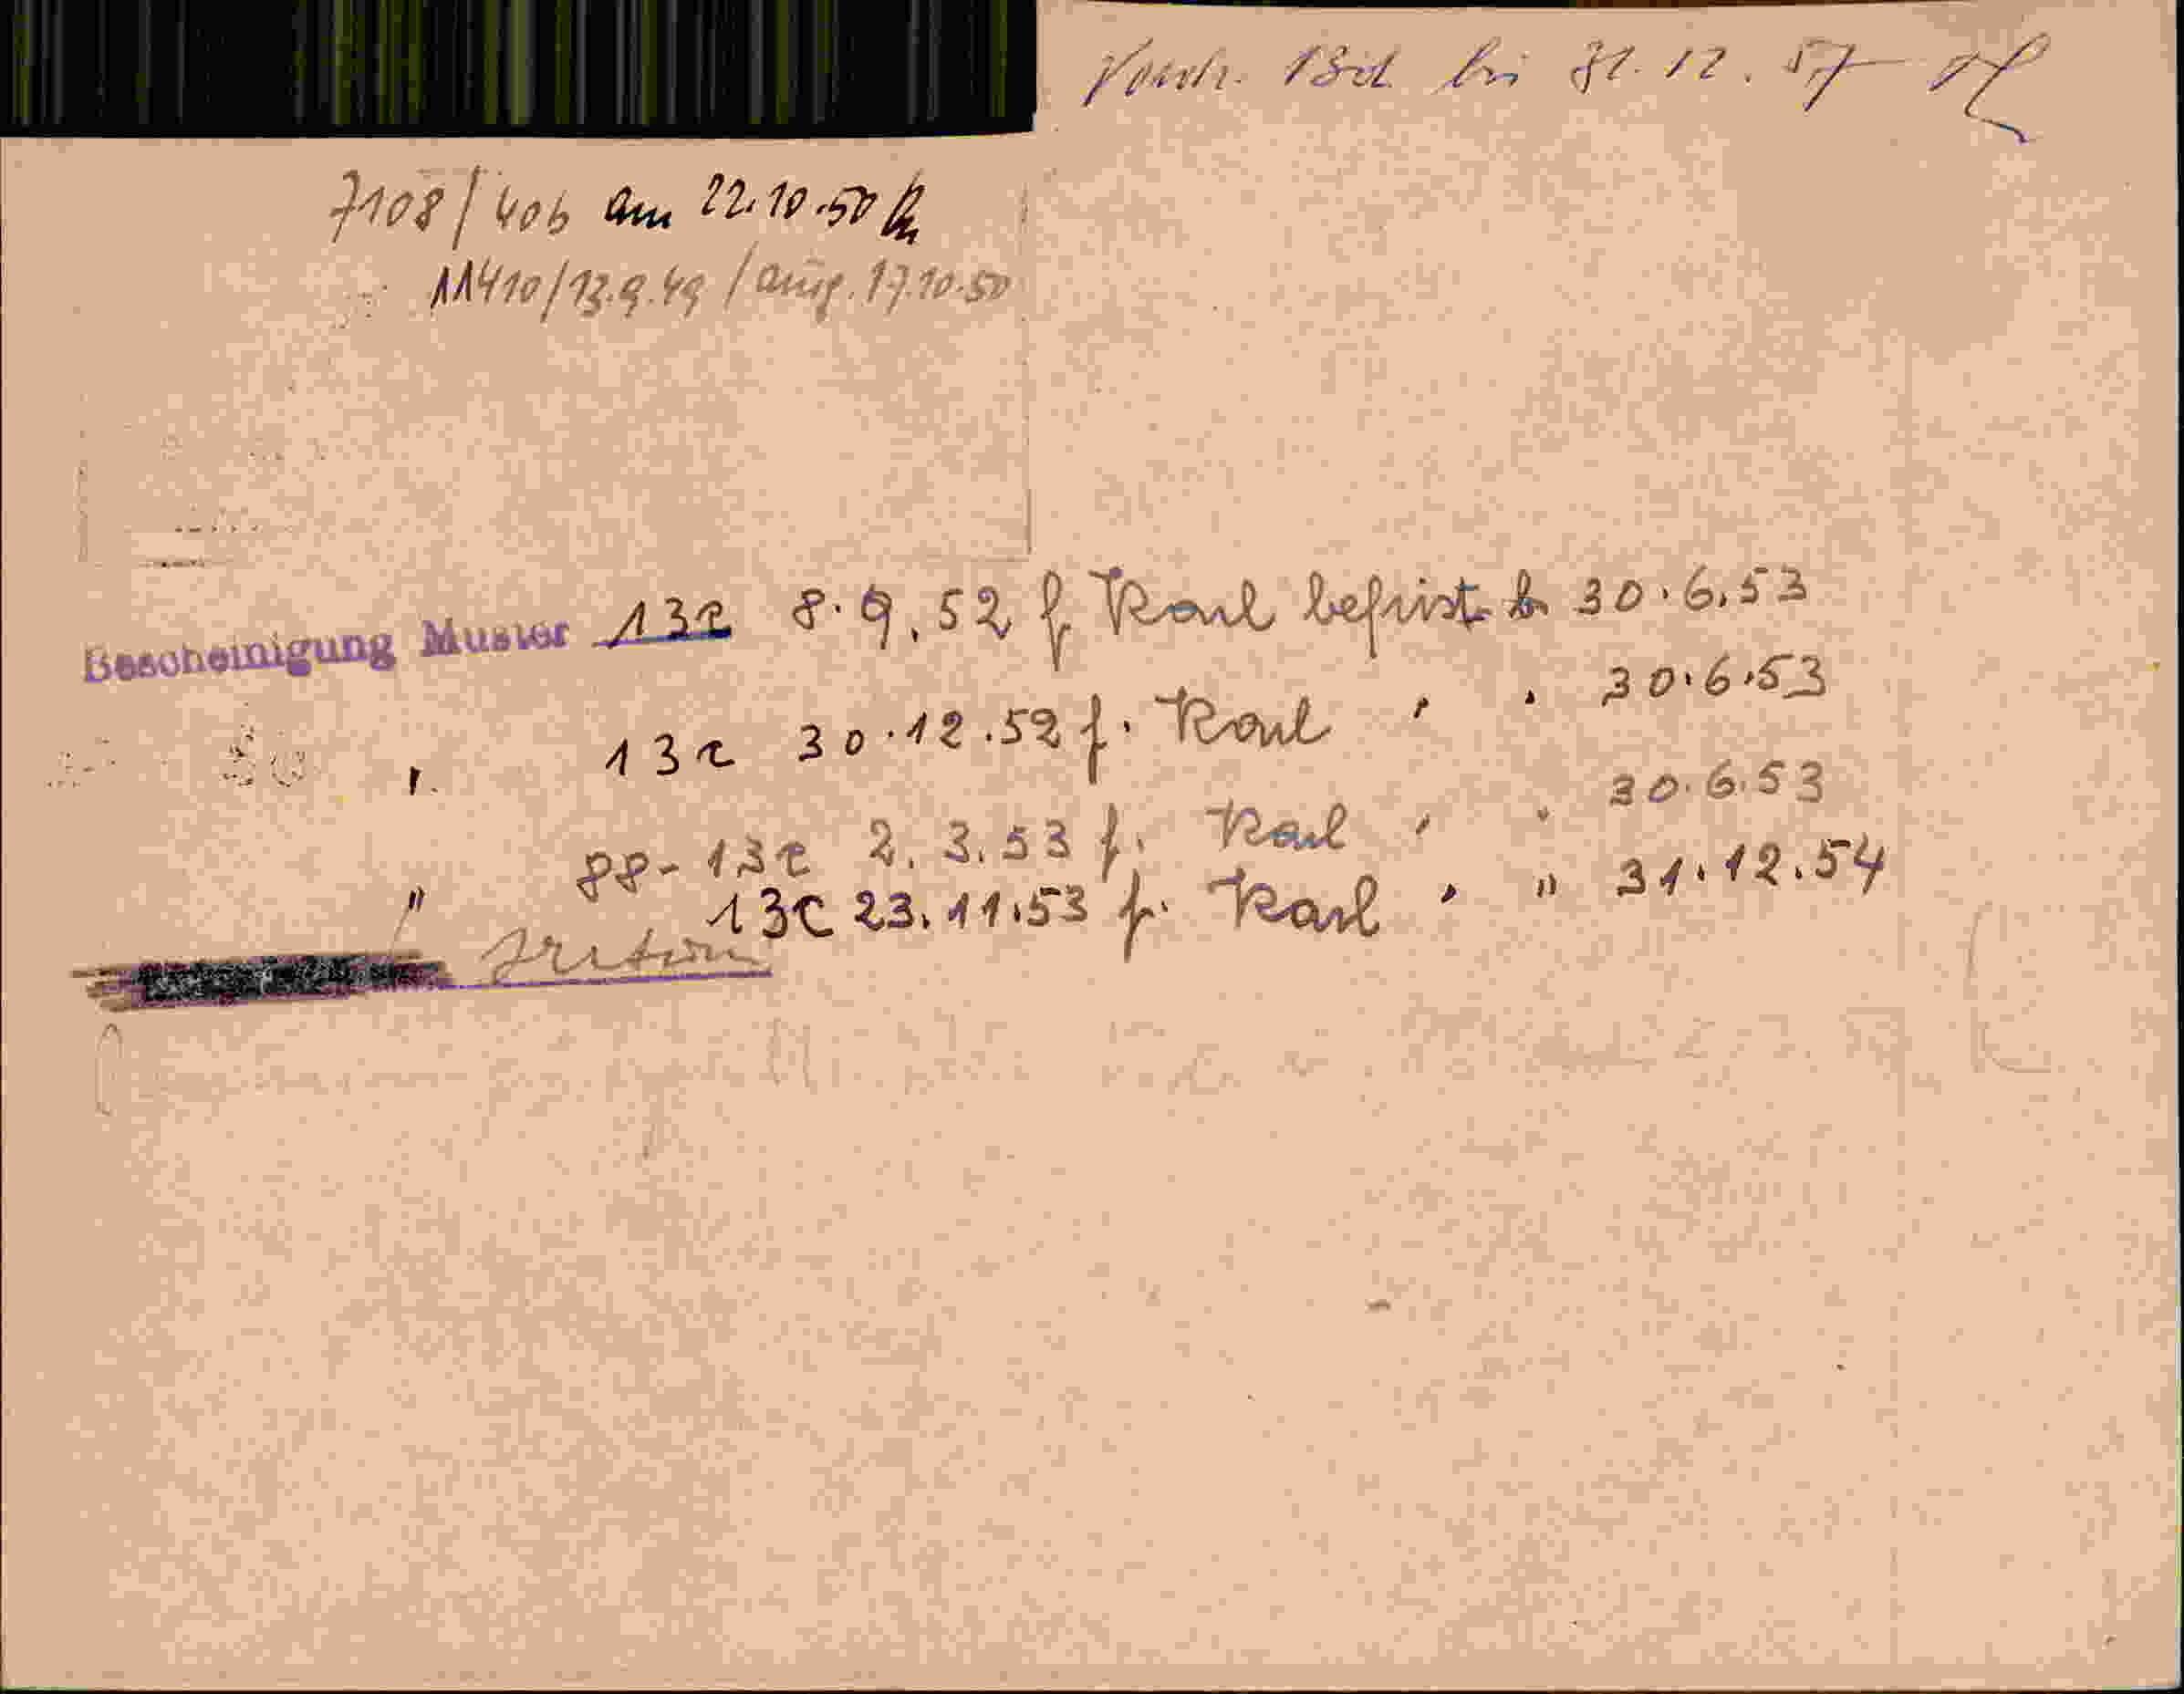 13d bis 31.12.57
7108/406 am 22.10.50
11410/13.9.49/ausg. 17.10.50
Bescheinigung Muster 13c 8.9.52 f Karl befrist. b 30.6.53
" 13c 30.12.52 f. Karl " " 30.6.53
88-13c 2.3.53 f. Karl " " 30.6.53
" 13c 23.11.53 f. Karl " " 31.12.54